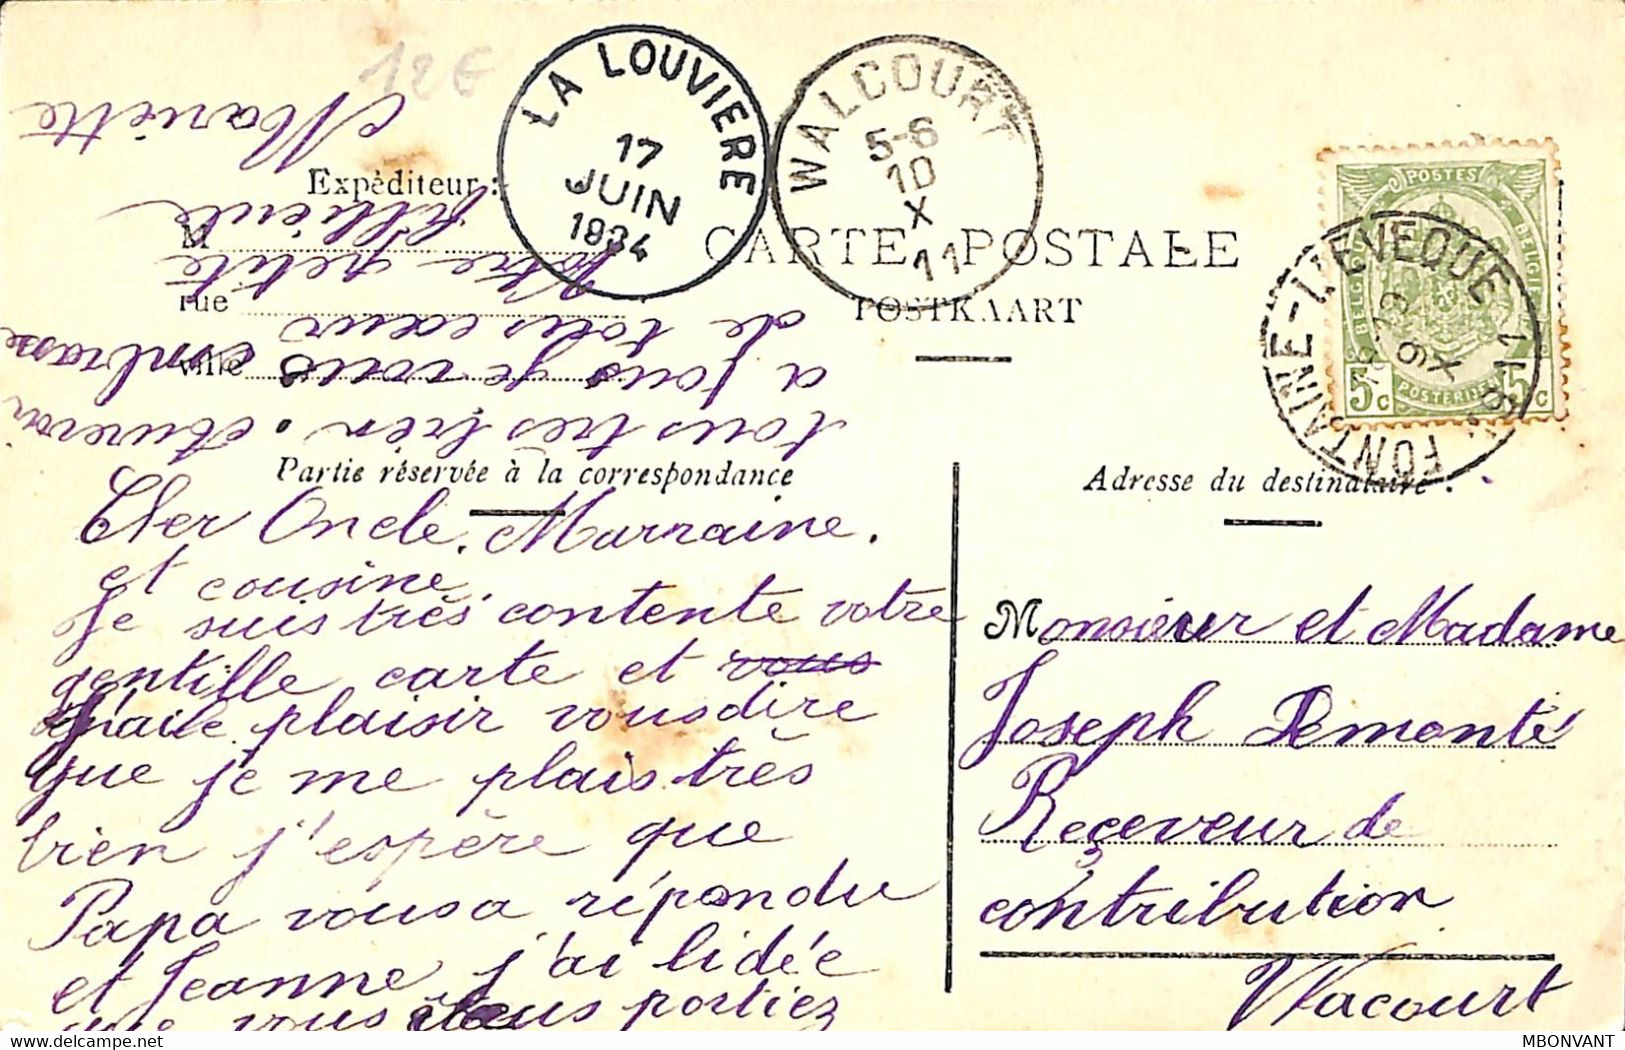 12€
LA LOUVIERE
17
JUIN
1934
WALCOURT
5-6
10
X
11
Expéditeur :
M
rue
ville
CARTE POSTALE
POSTKAART
POSTES
BELGIQUE
BELGIË
5c
POSTERIJEN
5c
FONTAINE-L'EVEQUE
9
X
11
Partie réservée à la correspondance
Adresse du destinataire :
Cher Oncle. Marraine.
et cousine.
Je suis très contente votre
gentille carte et vous
plaisir vous dire
que je me plais très
bien j'espère que
Papa vous a répondu
et Jeanne j'ai lidée
que vous portiez
tous très bien. Aurevoir
a tous je vous embrasse
de tous cœur
Votre petite
filleule
Mariette
Monsieur et Madame
Joseph Demonté
Reçeveur de
contribution
Wlacourt
MBONVANT